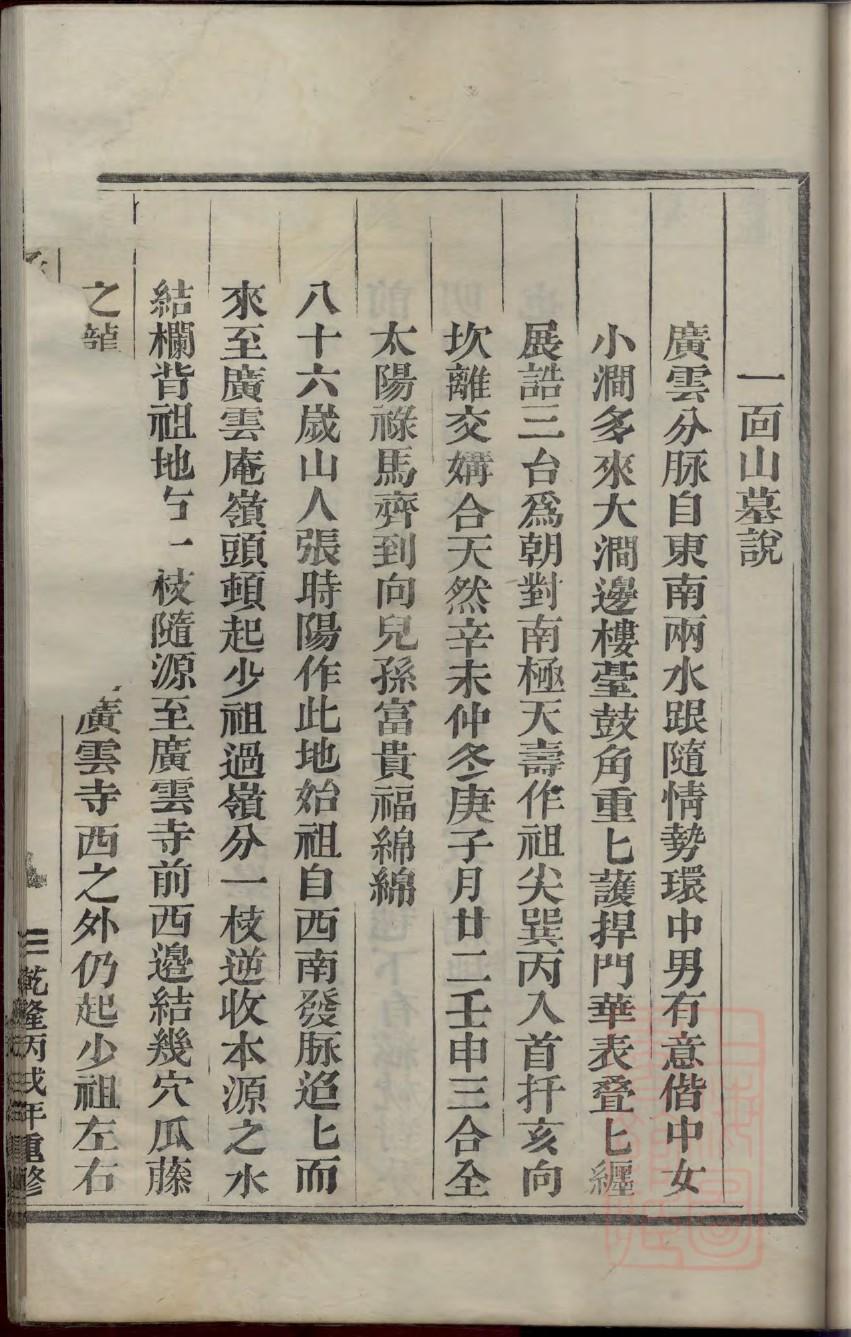 一面山墓說
廣雲分脉自東南兩水跟隨情勢環中男有意偕中女
小澗多來大澗邊樓臺鼓角重匕護捍門華表叠匕纒
展誥三台爲朝對南極天壽作祖尖巽丙入首扦亥向
坎離交媾合天然辛未仲冬庚子月廿二壬申三合全
太陽祿馬齊到向兒孫富貴福綿綿
八十六歲山人張時陽作此地始祖自西南發脉迨匕而
來至廣雲庵嶺頭頓起少祖過嶺分一枝逆收本源之水
結欄背祖地 一枝隨源至廣雲寺前西邊結幾穴瓜藤
之 廣雲寺西之外仍起少祖左右
乾隆丙戌年重修